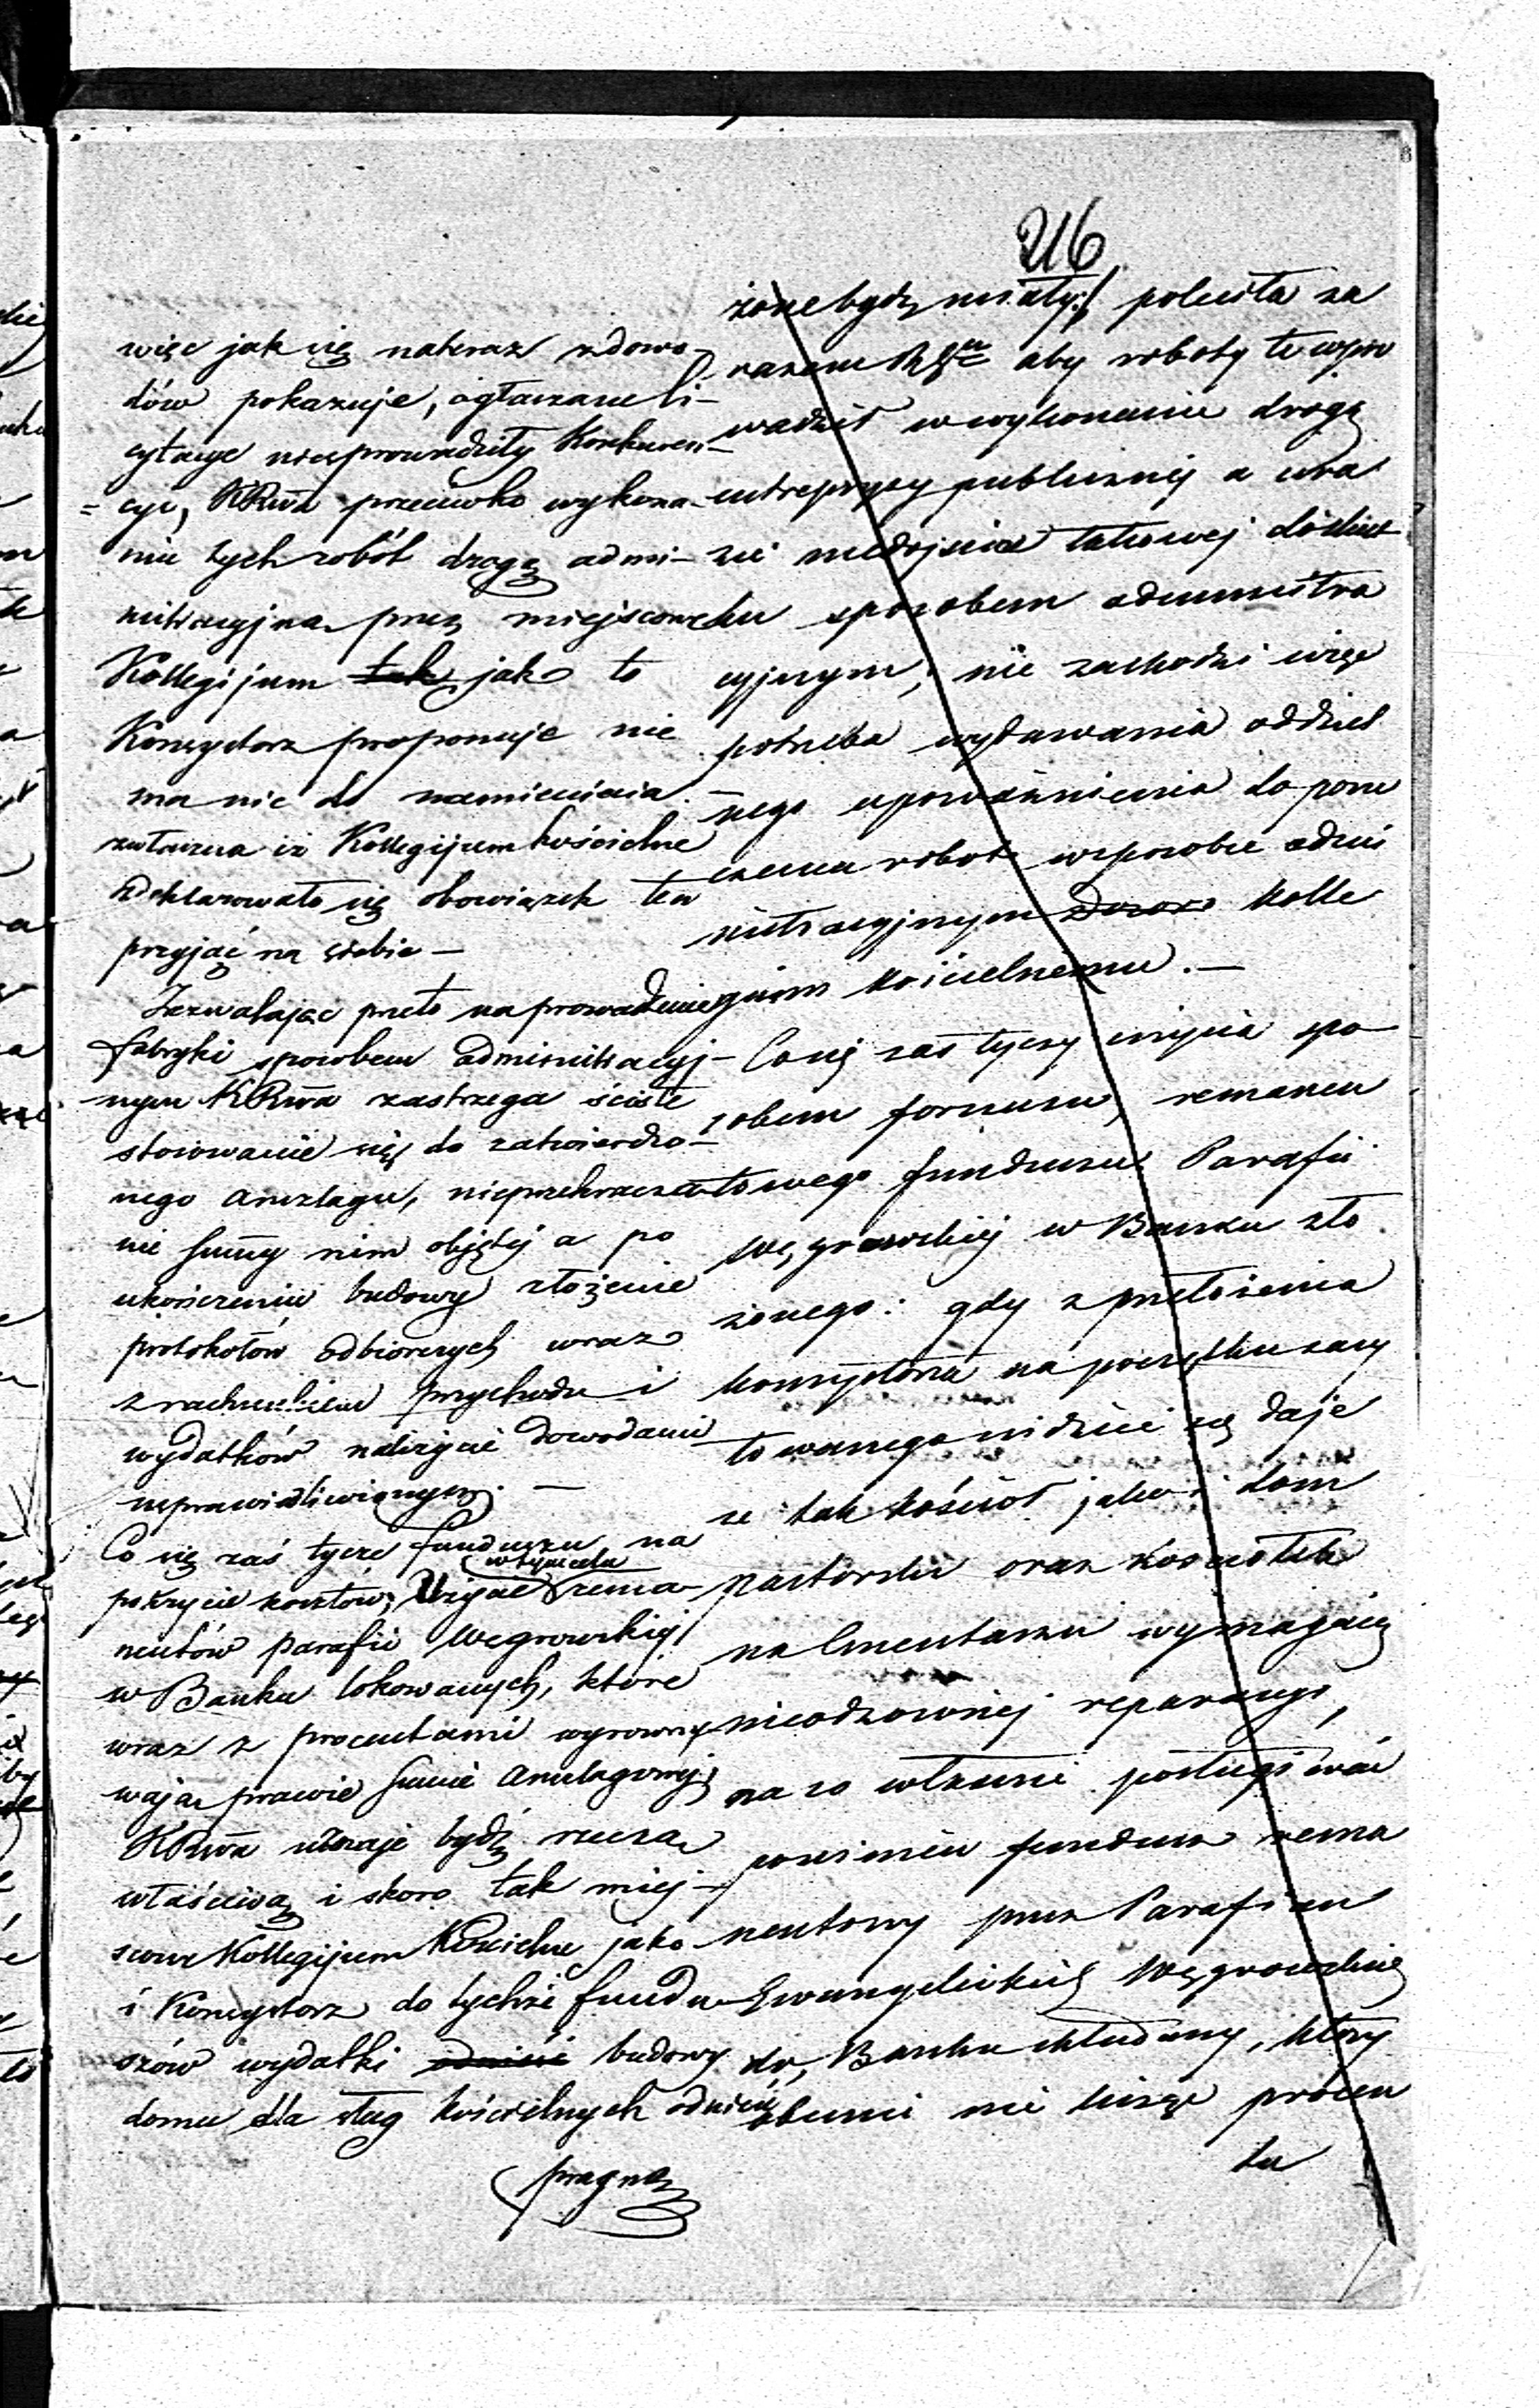 216
więc jak się nateraz z dowo-
dów pokazuje, ogłaszane li-
cytacye niesprowadziły Konkuren-
=cyi, KRwa przeciwko wykona-
niu tych robót drogą admi-
nistracyjną przez miejscowe
Kollegijum tak jak to
Konsystorz proponuje nie
ma nic do namienienia.
zwłaszcza iż Kollegijum kościelne
zdeklarowało się obowiązek ten
przyjąć na siebie —
Zezwalając przeto na prowadzenie
fabryki sposobem administracyj-
nym KRwa zastrzega ścisłe
stosowanie się do zatwierdzo-
nego anszlagu, nieprzekracza
nie summy nim objętej a po
ukończeniu budowy złożenie
protokołów odbiorczych wraz
z rachunkiem przychodu i
wydatków należycie dowodami
usprawiedliwionym. —
Co się zaś tycze funduszu na
pokrycie kosztów; Użycie w tym celu rema-
nentów parafii Węgrowskiej
w Banku lokowanych, które
wraz z procentami wyrowny
wają prawie summie anszlagowej;
KRwa uznaje bydź rzeczą
właściwą i skoro tak miej-
scowe Kollegijum Kościelne jako
i Konsystorz do tychże fundu
szów wydatki odnieść budowy
domu dla sług kościelnych odnieść
pragną
żone bydź miały:/ poleciła za
razem aby roboty te wpro
wadził w wykonanie drogą
entrepryzy publicznej a w ra
zie niedojścia takowej do skut
ku sposobem administra
cyjnym; nie zachodzi więc
potrzeba wydawania oddziel
nego upoważnienia do poru
czenia robot w sposobie admi
nistracyjnym Dozoro Kolle
gium kościelnemu. —
Co się zaś tyczy użycia spo-
sobem forszusu, remanen
towego funduszu Parafii
Węgrowskiej w Banku zło
żonego: gdy z przełożenia
Konsystorza na początku zacy
towanego widzieć się daje
że tak kościoł jako i dom
pastorski oraz kosciołek
na Cmentarzu wymagają
nieodzownej reparacyi,
na co właśnie posługiwać
powinien fundusz rema
nentowy przez Parafian
Ewangelickich Węgrowskich
do Banku składany, który
obecnie nie licząc procen
tu